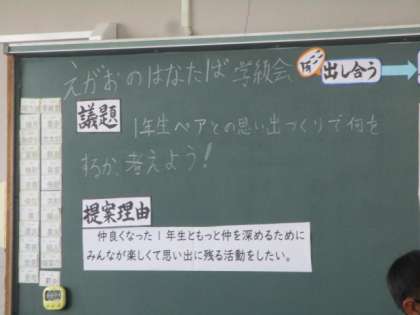 えがおのはなたば 学級会
出し合う
議題
1年生ペアとの思い出づくりで何を
するか、考えよう!
提案理由
仲良くなった1年生ともっと仲を深めるために
みんなが楽しくて思い出に残る活動をしたい。